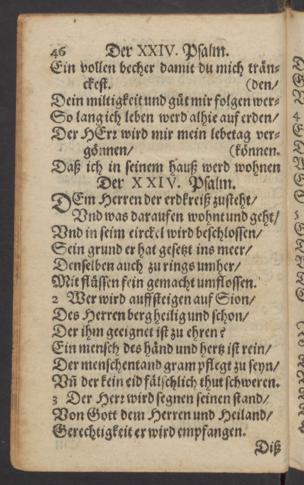 46 Der XXIV. Psalm.
Ein vollen becher damit du mich trän-
ckest. (den/
Dein miltigkeit und güt mir folgen wer-
So lang ich leben werd alhie auf erden/
Der HErr wird mir mein lebetag ver-
gönnen/ (können.
Daß ich in seinem hauß werd wohnen
Der XXIV. Psalm.
DEm Herren der erdkreiß zusteht/
Vnd was daraufen wohnt und geht/
Vnd in seim circkel wird beschlossen/
Sein grund er hat gesetzt ins meer/
Denselben auch zu rings umher/
Mit flüssen fein gemacht umflossen.
2 Wer wird auffsteigen auf Sion/
Des Herren berg heilig und schon/
Der ihm geeignet ist zu ehren?
Ein mensch des händ und hertz ist rein/
Der menschentand gram pflegt zu seyn/
Vñ der kein eid fälschlich thut schweren.
3 Der Herr wird segnen seinen stand/
Von Gott dem Herren und Heiland/
Gerechtigkeit er wird empfangen.
Diß